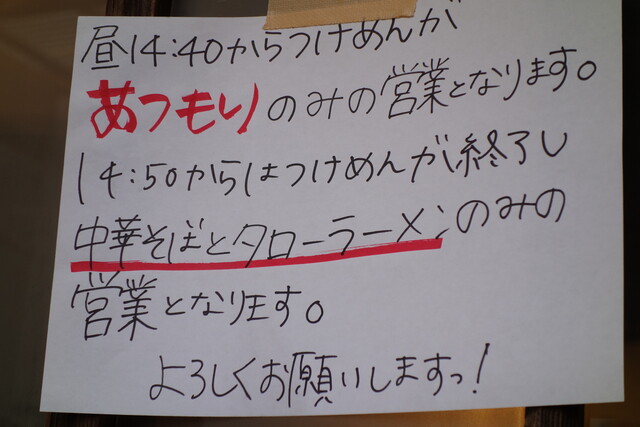 昼14:40からつけめんが
あつもりのみの営業となります。
14:50からはつけめんが終了し
中華そばとタローラーメンのみの
営業となります。
よろしくお願いしますっ!